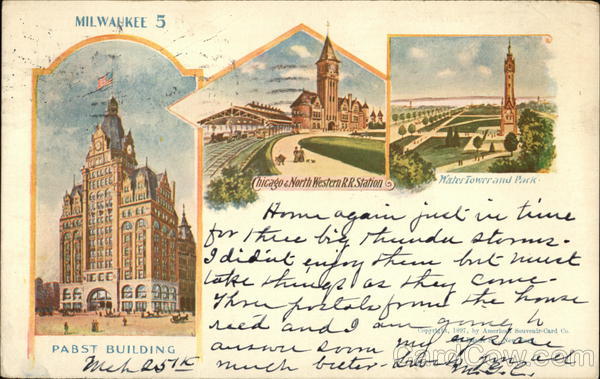 MILWAUKEE 5
Chicago & North Western R.R. Station
Water Tower and Park
PABST BUILDING
Home again just in time
for three big thunder storms.
I didn't enjoy them but must
take things as they come.
Three postals from the house
reed and I am going to
Copyright, 1897, by American Souvenir-Card Co.
answer soon my eyes are
much better-
Mch 25th
CardCow.com